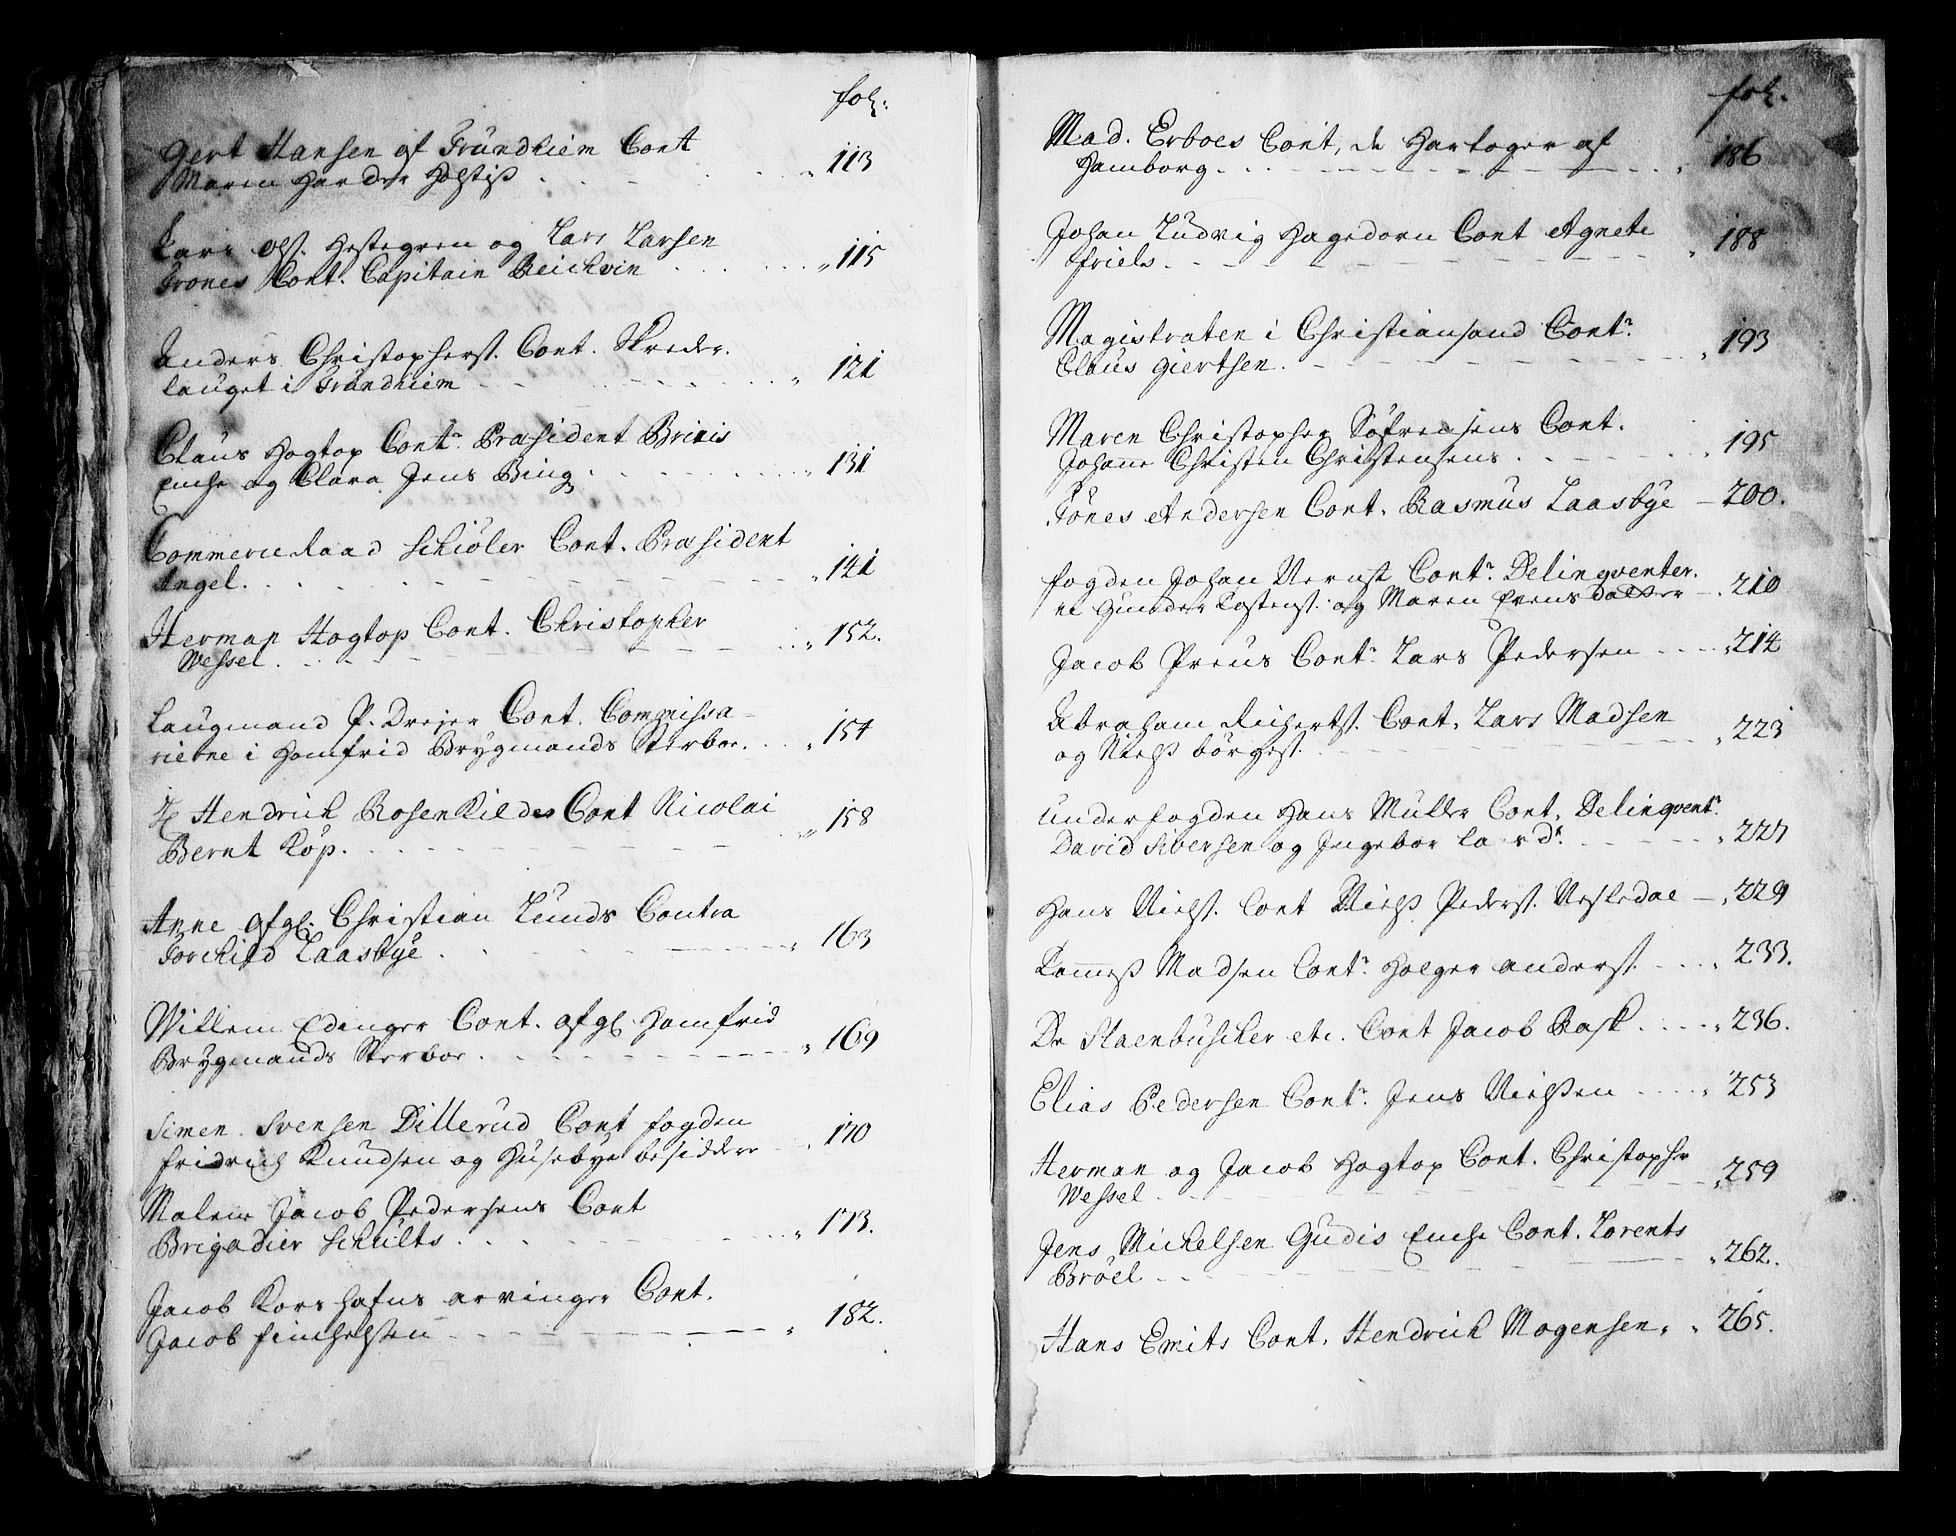 fol:
Gert Hansen af Trundhiem Cont
Maren Harder Holstis . . . „ 113
Lars Ols. Hestegren og Lars Larsen
Trones Cont. Capitain Reichvin . . . „ 115
Anders Christophers. Cont. Skreder
lauget i Trundhiem . . . „ 121
Claus Hogtop Contr. Præsident Brixis
Enche og Clara Jens Bing . . . „ 131
Commercie Raad Schiøler Cont. Præsident
Angel . . . „ 141
Herman Hogtop Cont. Christopher
Wessel . . . „ 152.
Laugmand P. Dreyer Cont. Commissa-
rierne i Homfrid Brygmands Sterboe . . . „ 154
Hr Hendrich Rosenkildes Cont Nicolai
Bernt Køp . . . „ 158
Anne afgl. Christian Lunds Contra
Torchild Laasbye . . . „ 163
Willem Edinger Cont. afgl Homfrid
Brygmands Sterboe . . . „ 169
Simen Svensen Dillerud Cont fogden
fridrich Knudsen og Husebye besiddere . . . 170
Malene Jacob Pedersens Cont
Brigadier Schults . . . „ 173.
Jacob Korshafns arvinger Cont.
Jacob finchelsten . . . „ 182.
fol.
Mad. Erboes Cont, de Hartoger af
Hamborg . . . „ 186
Johan Ludvig Hagedorn Cont Agnete
friels . . . „ 188
Magistraten i Christiansand Contr.
Claus Giertsen . . . „ 193
Maren Christopher Søfrensens Cont.
Johanne Christen Christensens . . . „ 195
Tønes Andersen Cont. Rasmus Laasbye – 200.
fogden Johan Wernst Contr. Delinqventer.
ne Gunder Tostens. og Maren Evensdatter – . 210
Jacob Preus Contr. Lars Pedersen . . . „ 214
Abraham Richerts. Cont. Lars Madsen
og Niels børges. . . . „ 223
Underfogden Hans Muller Cont. Delinqventr.
David Siversen og Ingebor Lars dr. . . . „ 227
Hans Niels. Cont Niels Peders. Neskedal – „ 229
Tammes Madsen Contr. Holger anders. . . . „ 233.
De Staenbuscher etc. Cont Jacob Rask . . . „ 236.
Elias Pedersen Contr. Jens Nielsen . . . „ 253
Herman og Jacob Hogtop Cont. Christopher
Wessel . . . „ 259
Jens Michelsen Gudis Enche Cont. Lorents
Brøel . . . „ 262.
Hans Emits Cont. Hendrich Mogensen. „ 265.